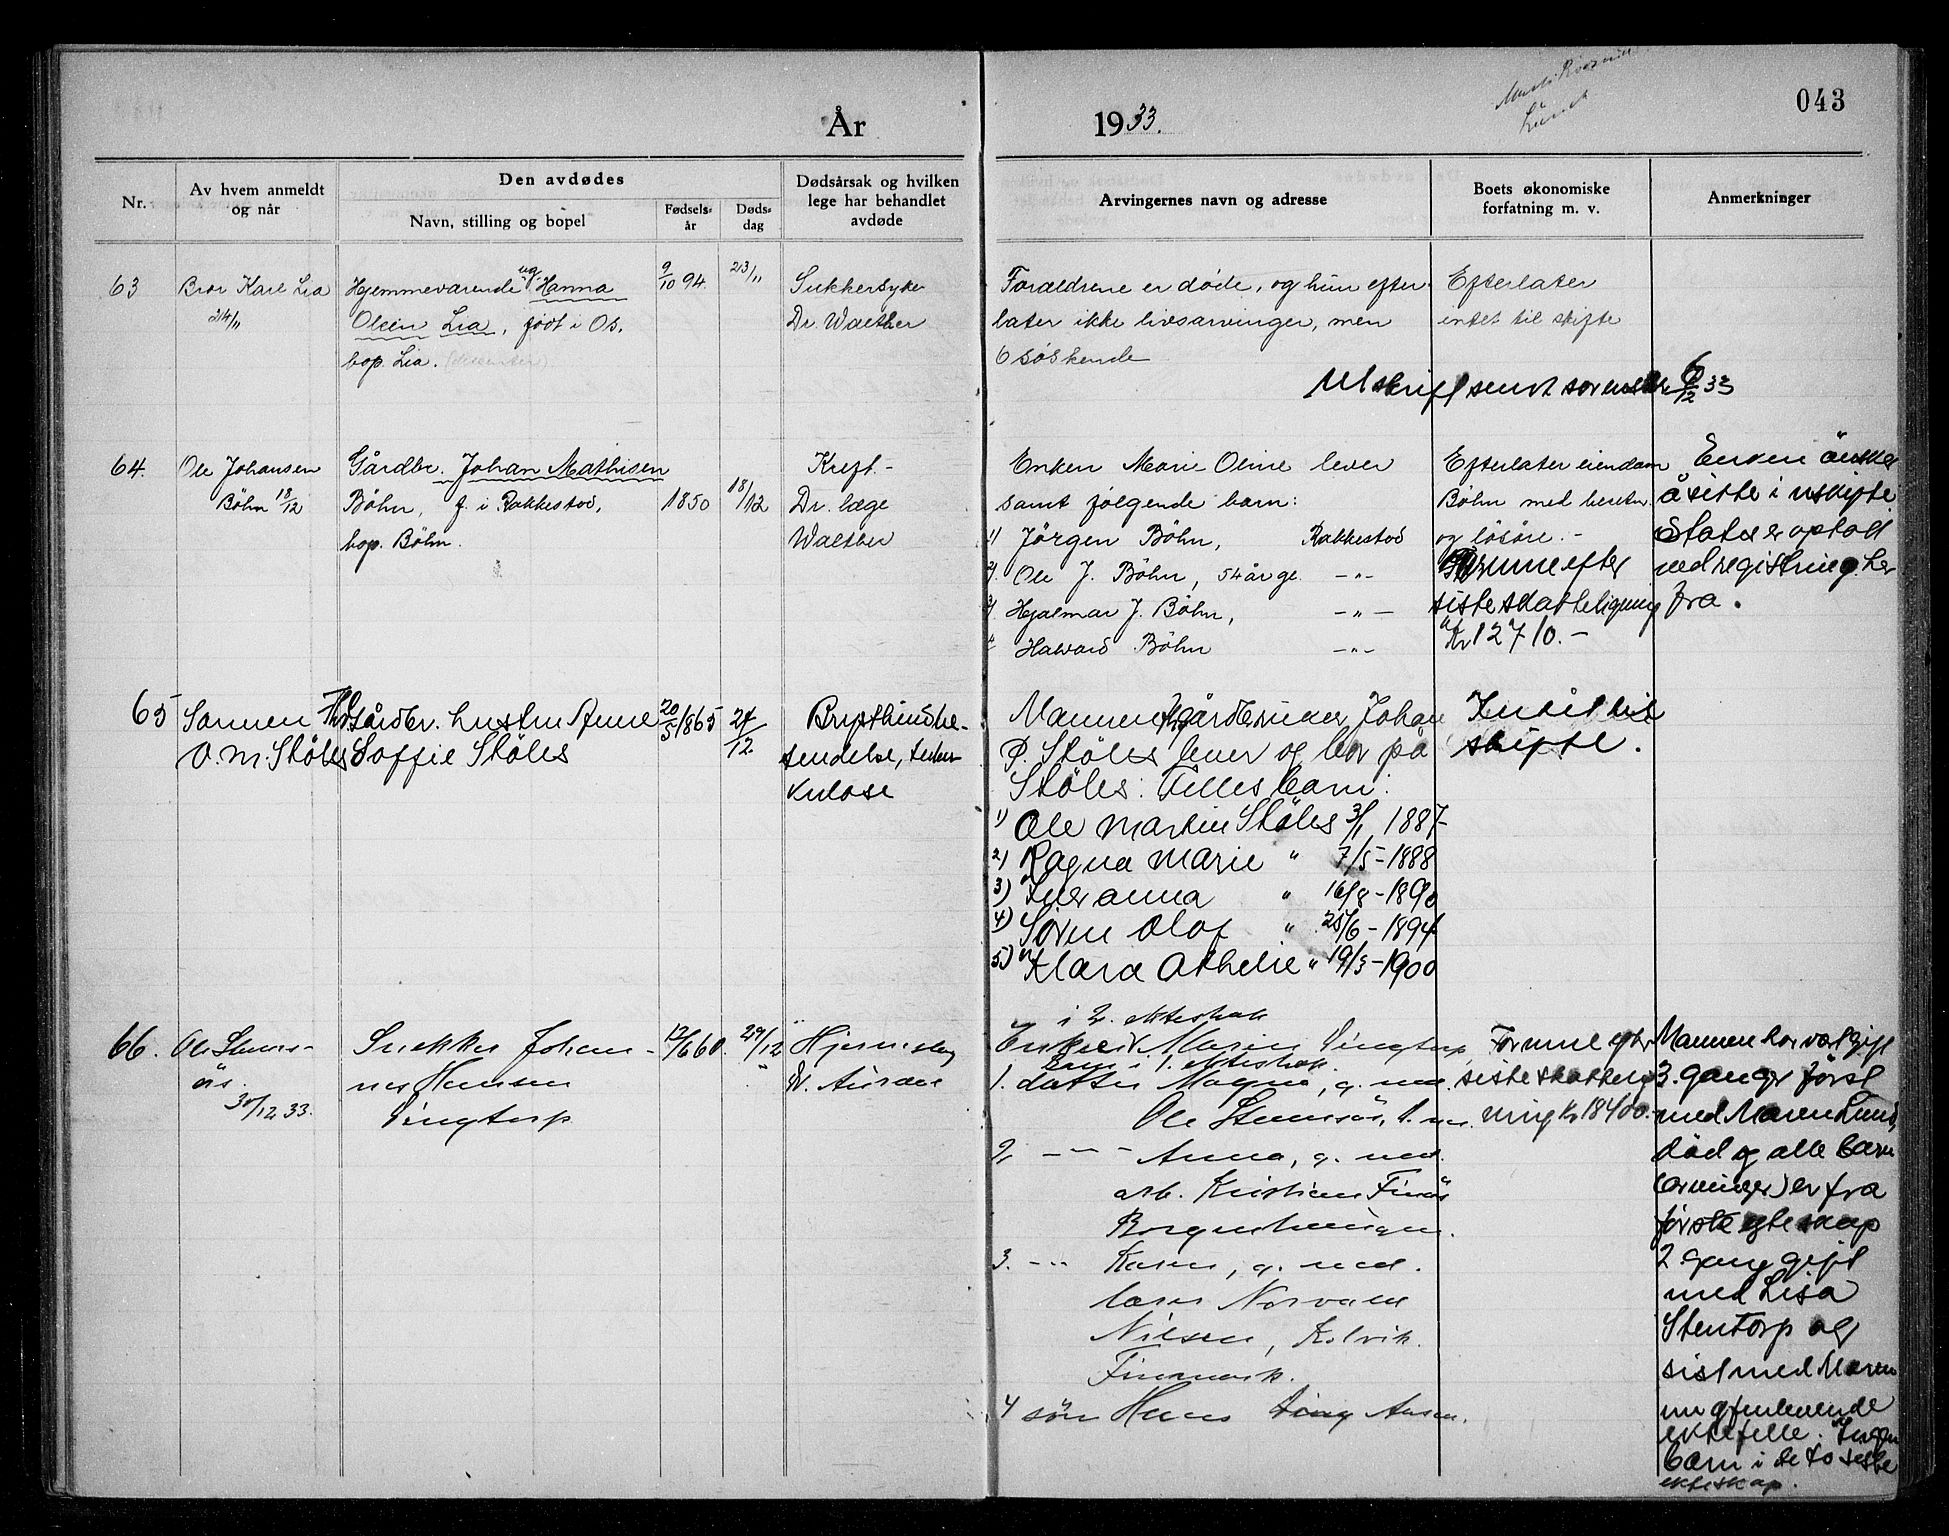 043
År 1933.
Nr.
Av hvem anmeldt og når
Den avdødes
Navn, stilling og bopel
Fødselsår
Dødsdag
Dødsårsak og hvilken lege har behandlet avdøde
Arvingernes navn og adresse
Boets økonomiske forfatning m. v.
Anmerkninger
63
Bror Karl Lia
24/11
Hjemmeværende ug. Hanna
Olein Lia, født i Os.
bop. Lia.
9/10 94.
23/11
Sukkersyke
Dr. Walther
Forældrene er døde, og hun efter
later ikke livsarvinger, men
6 søskende
Efterlater
intet til skifte
Utskrift sendt 6/12 33
64.
Ole Johansen
Böhn 18/12
Gårdbr. Johan Mathisen
Böhn, f. i Rakkestad,
bop. Böhn.
1850
18/12
Kreft -
Dr. læge
Walther
Enken Marie Oline lever
samt følgende barn:
1) Jørgen Böhn, Rakkestad
2) Ole J. Böhn, 54 år ge. -"-
3) Hjalmar J. Böhn, -"-
4 Halvard Böhn -"-
Efterlater eiendom
Böhn med besetn.
og løsöre. -
Formue efter
siste skatteligning
Kr 12710.-
Enken önsker
å sitte i uskifte
Status er optatt
ved registrering her
fra.
65
Sønnen
O. M. Stöles
Gårdbr. hustru Anne
Soffie Stöles
20/5 1865
24/12
Brysthindebe-
tendelse, tuber
kulose
Mannen gårdbruker Johan
P. Stöles lever og bor på
Stöles: Felles barn:
1) Ole Martin Stöles 3/1 1887
2) Ragna Marie " 7/5 - 1888
3) Inger Anna " 16/8 - 1890
4) Søren Olaf " 25/6 - 1894
5) Klara Othelie " 19/3 - 1900
Intet til
skifte.
66.
30/12 33.
Snekker Johan-
nes Hansen
Singtorp
12/6 60.
29/12
Hjerneslag
i 2. ekteskab
Enke Maren Singtorp
Barn i 1. ekteskab.
1. datter Magna, g. med
2, -"- Anna, g. med.
arb. Kristian
3. -"- Karen, g. med.
Nielsen,
Finnmark.
4 søn Hans
Formue efter
siste skattelig
ning kr 18400.-
Mannen har vært gift
3. ganger først
med Maren Lund,
død og alle barn
(arvinger) er fra
første ekteskap
2 gang gift
med Lisa
Stentorp og
sist med Maren
nu gjenlevende
ektefelle. Ingen
barn i de to siste
ekteskap.